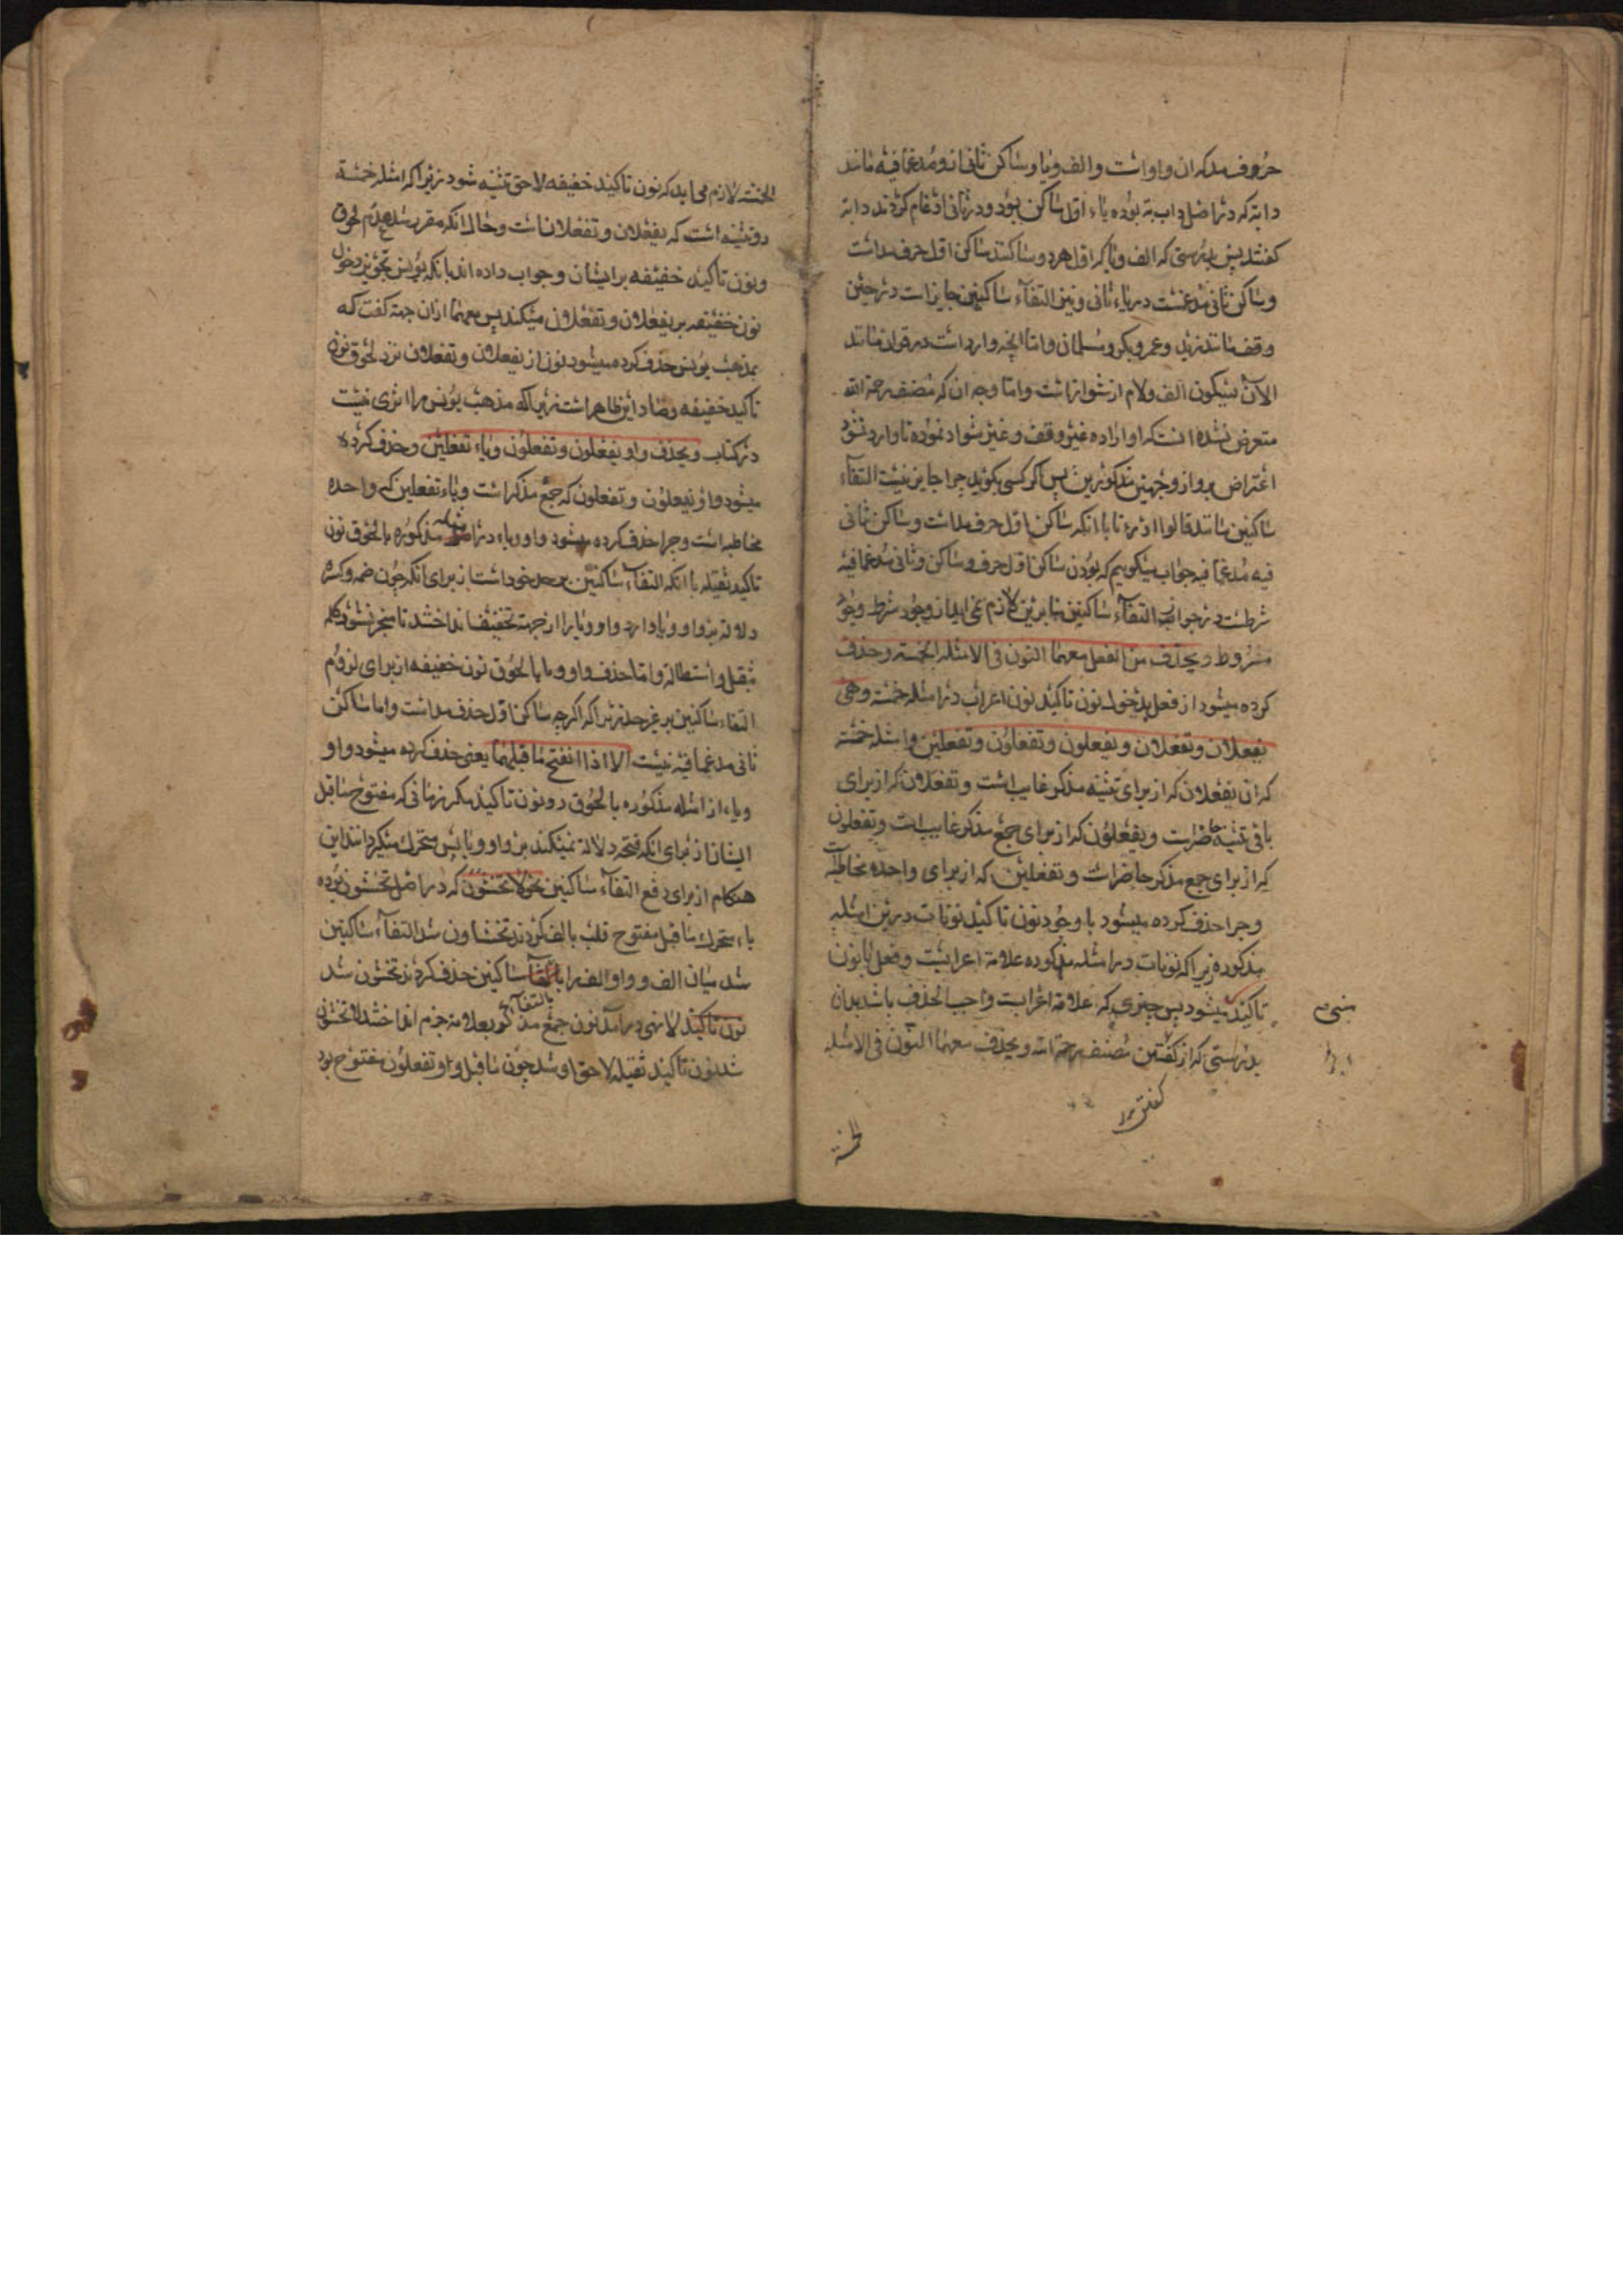 حروف مد که ان واو است والف ویا وساکن ثانی او مدغم فیه مانند
دابه که در اصل داببه بوده باء اول ساکن بود ودر ثانی ادغام کردند دابه
کفتند پس بدرستی که الف وباء که اول هر دو ساکنند ساکن اول حرف مد است
وساکن ثانی مدغمست در باء ثانی ونیز التقاء ساکنین جایز است در حین
وقف مانند زید وعمرو وبکر ومسلمان واما انچه وارد است در قران مانند
الآن بسکون الف ولام از شواز است واما وجه ان که مصنف رحمة الله
متعرض نشده انست که او اراده غیر وقف وغیر شواذ نموده تا وارد نشود
اعتراض بر او از وجهین مذکورین پس اکر کسی بکوید چرا جایز نیست التقاء
ساکنین مانند قالوا ادّارءنا با انکه ساکن اول حرف مد است وساکن ثانی
فیه مدغم فیه جواب میکوییم که بودن ساکن اول حرف وساکن وثانی مدغم فیه
شرطست در جواز التقاء ساکنین بنابرین لازم نمی اید از وجود شرط وجود
مشروط ویحذف من الفعل معهما النون فی الامثلة الخمسة وحذف
کرده میشود از فعل بدخول نون تاکید نون اعراب در امثله خمسه وهی
یفعلان وتفعلان ویفعلون وتفعلون وتفعلین وامثله خمسه
که ان یفعلان که از برای تثنیه مذکر غایب است وتفعلان که از برای
باقی تثنیه حاضرات ویفعلون که از برای جمع مذکر غایب است وتفعلون
که از برای جمع مذکر حاضرات وتفعلین که از برای واحده مخاطبه است
وچرا حذف کرده میشود با وجود نون تاکید نونات درین امثله
مذکوره زیرا که نونات در امثله مذکوره علامة اعرابست وفعل بانون
تاکید میشود پس چیزی که علامة اعرابست واجب الحذف باشد بدان
مبنی
بدرستی که از کفتن مصنف رحمة الله ویحذف معهما النون فی الامثلة
الخمسة
الخمسة لازم می اید که نون تاکید خفیفه لاحق تثنیه شود زیرا که امثله خمسة
دو تثنیه است که یفعلان وتفعلان است وحال انکه مقرر شد عدم لحوق
ونون تاکید خفیفه بر ایشان وجواب داده اند بانکه یونس تجویز دخول
نون خفیفه بر یفعلان وتفعلان میکند پس معهما ازان جهة کفت که
بمذهب یونس حذف کرده میشود نون از یفعلان وتفعلان نزد لحوق نون
تاکید خفیفه وفساد این ظاهر است زیرا که مذهب یونس را اثری نیست
در کتاب ویحذف واو یفعلون وتفعلون ویاء تفعلین وحذف کرده
میشود واو یفعلون وتفعلون که جمع مذکر است ویاء تفعلین که واحده
مخاطبه است وچرا حذف کرده میشود واو ویاء در امثله مذکوره بالحوق نون
تاکید ثقیله با انکه التقاء ساکنین بر حد خود است از برای انکه چون ضمه وکسره
دلالة بر واو ویا دارد واو ویا را از جهة تخفیف انداختند تا منجر نشود کلمه
بثقل واستطالة واما حذف واو ویا بالحوق نون خفیفه از برای لزوم
التقاء ساکنین بر غیر حد زیرا که اکرچه ساکن اول حذف مد است واما ساکن
ثانی مدغم فیه نیست الا اذا انفتح ما قبلهما یعنی حذف کرده میشود واو
ویاء از امثله مذکوره بالحوق دو نون تاکید مکر زمانی که مفتوح ماقبل
ایشان از برای انکه فتحه دلالة نمیکند بر واو ویا پس متحرک میکردانند این
هنکام از برای دفع التقاء ساکنین نحو لا تخشون که در اصل تخشیون بوده
یاء متحرک ماقبل مفتوح قلب بالف کردند تخشاون شد التقاء ساکنین
شد میان الف وواو الف را بالتقاء ساکنین حذف کردند تخشون شد
نون تاکید لا نهی در امد نون جمع مذکر بعلامة جزم انداختند لا تخشوا
شد نون تاکید ثقیله لاحق او شد چون ماقبل واو تفعلون مفتوح بود